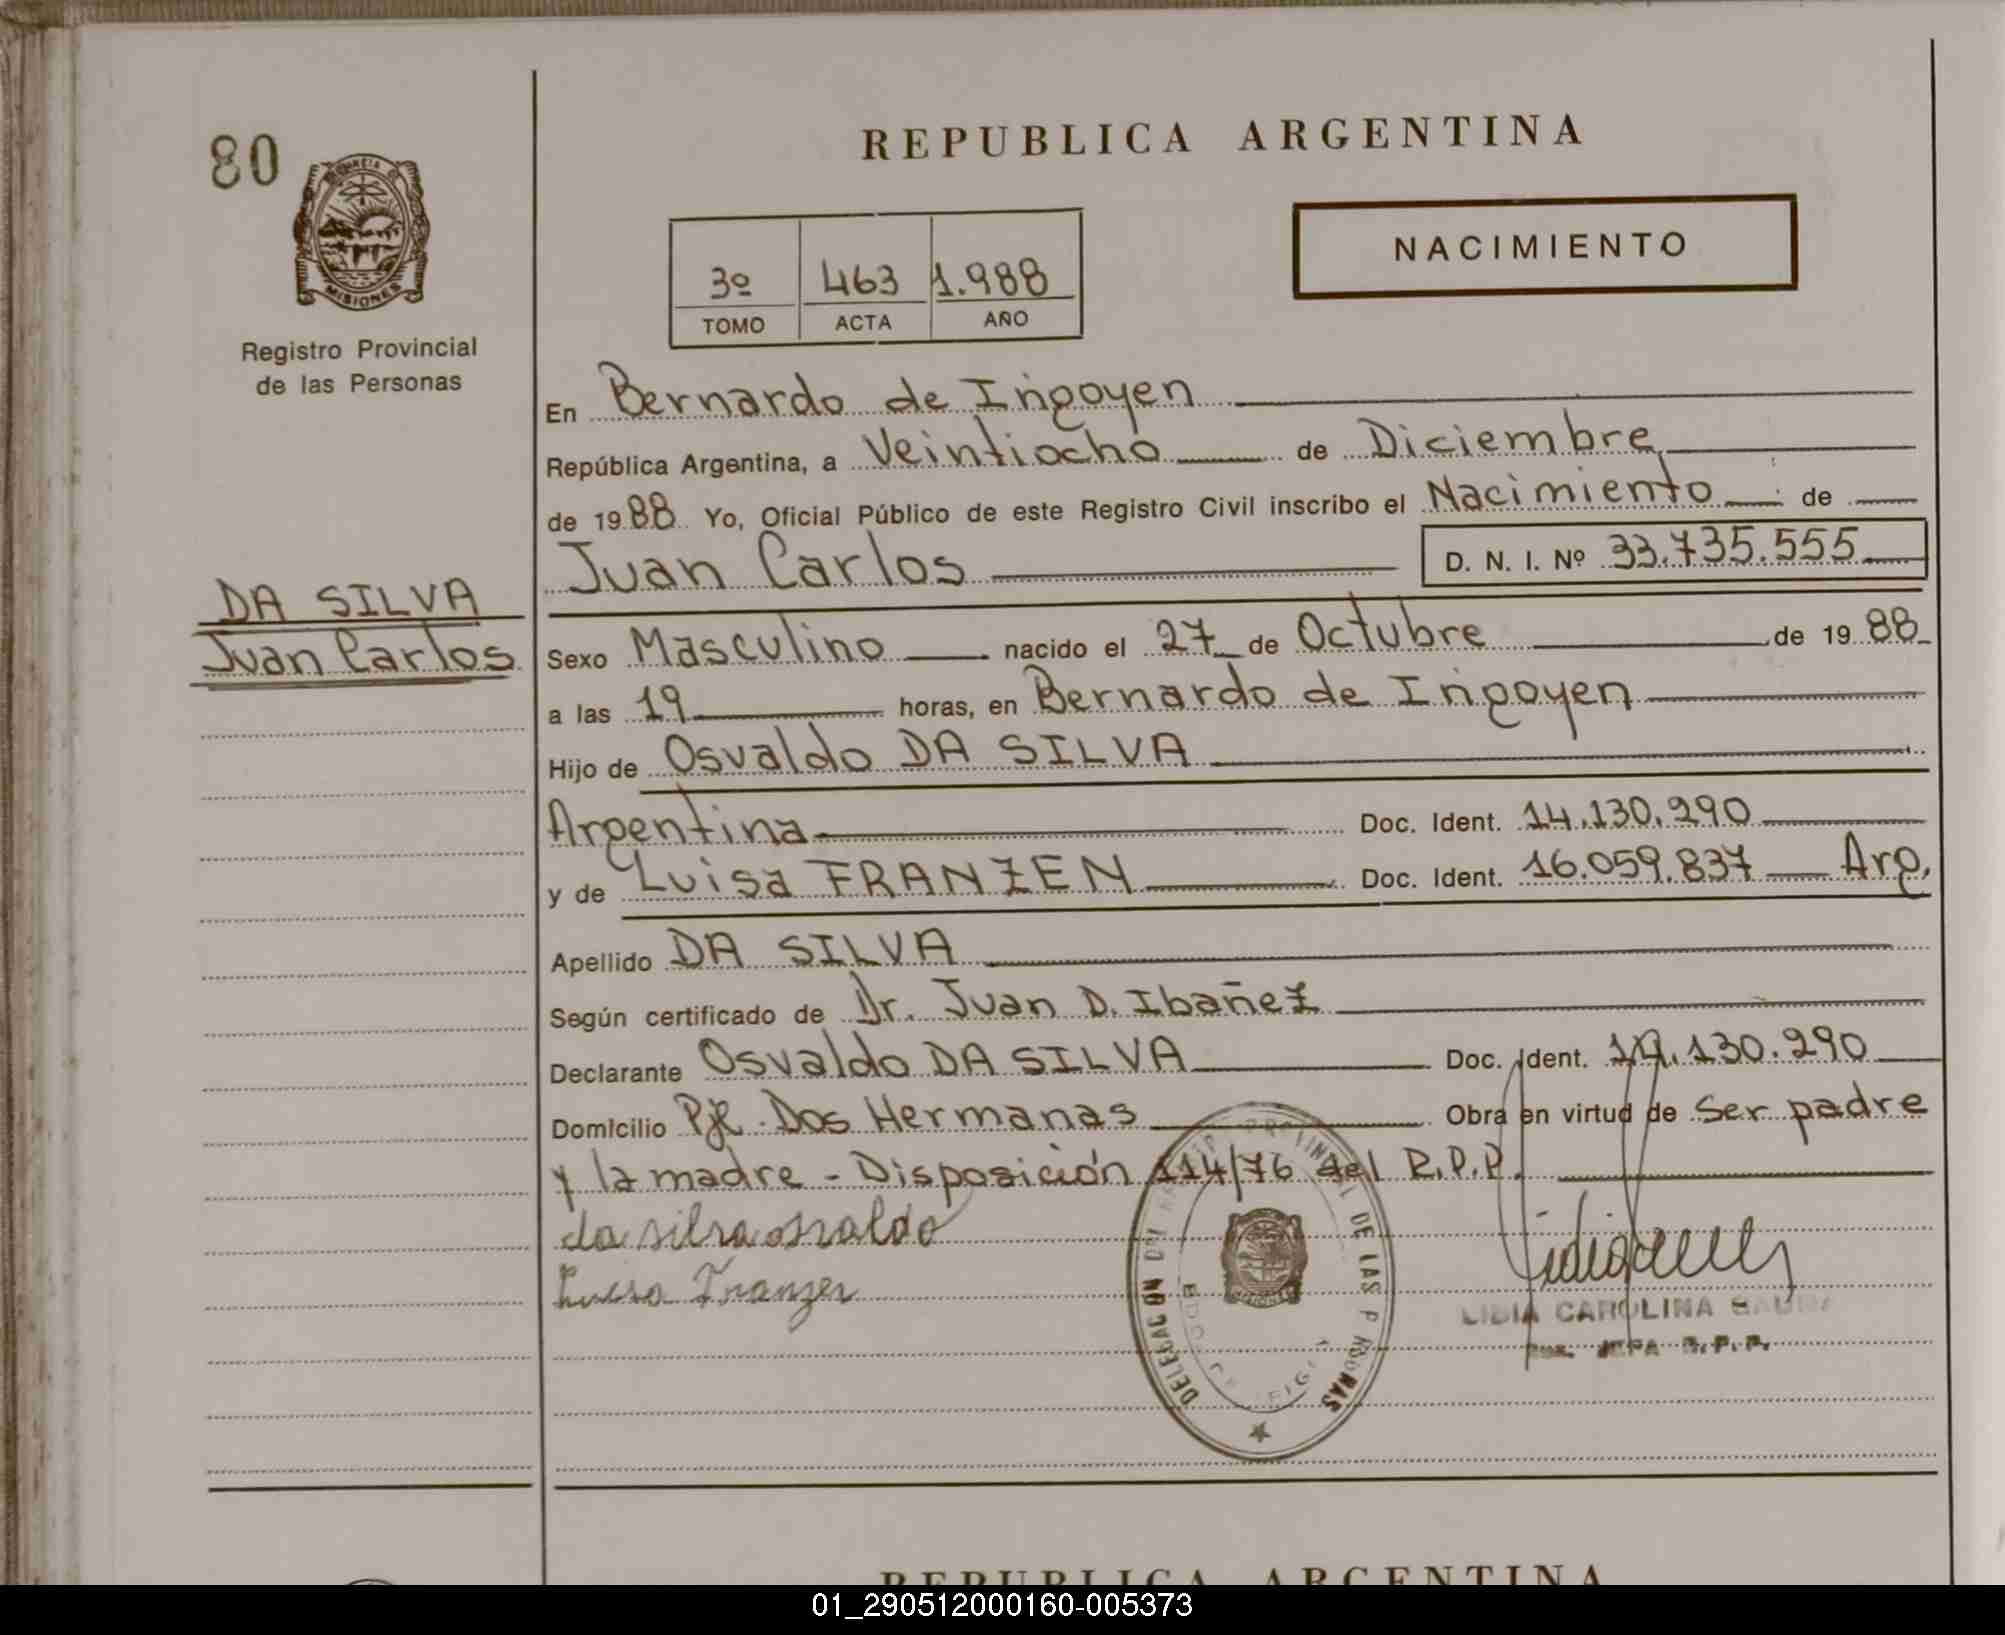 REPUBLICA ARGENTINA
80
MISIONES
Registro Provincial
de las Personas
NACIMIENTO
3º 463 1.988
TOMO ACTA AÑO
En Bernardo de Irigoyen
República Argentina, a Veintiocho de Diciembre
de 1988 Yo, Oficial Público de este Registro Civil inscribo el Nacimiento de
Juan Carlos D. N. I. Nº 33.735.555
DA SILVA
Juan Carlos
Sexo Masculino nacido el 27 de Octubre de 1988
a las 19 horas, en Bernardo de Irigoyen
Hijo de Osvaldo DA SILVA
Argentina Doc. Ident. 14.130.290
y de Luisa FRANZEN Doc. Ident. 16.059.837 Arg.
Apellido DA SILVA
Según certificado de Dr. Juan D. Ibañez
Declarante Osvaldo DA SILVA Doc. Ident. 14.130.290
Domicilio Pje. Dos Hermanas Obra en virtud de Ser padre
y la madre - Disposición 114/76 del R.P.P.
da silva osvaldo
Luisa Franzen
DELEGACION DE LAS
LIDIA CAROLINA
R.P.P.
REPUBLICA ARGENTINA
01_290512000160-005373